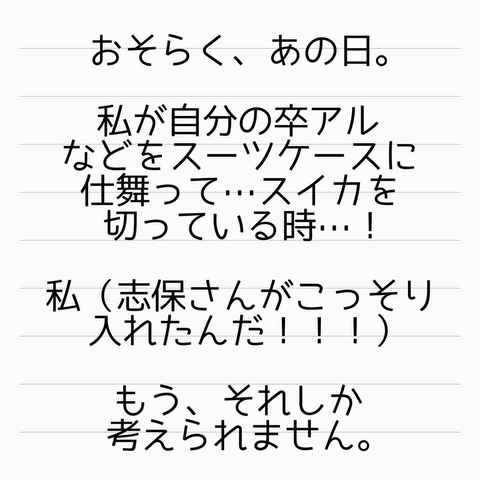 おそらく、あの日。
私が自分の卒アル
などをスーツケースに
仕舞って…スイカを
切っている時…！
私（志保さんがこっそり
入れたんだ！！！）
もう、それしか
考えられません。